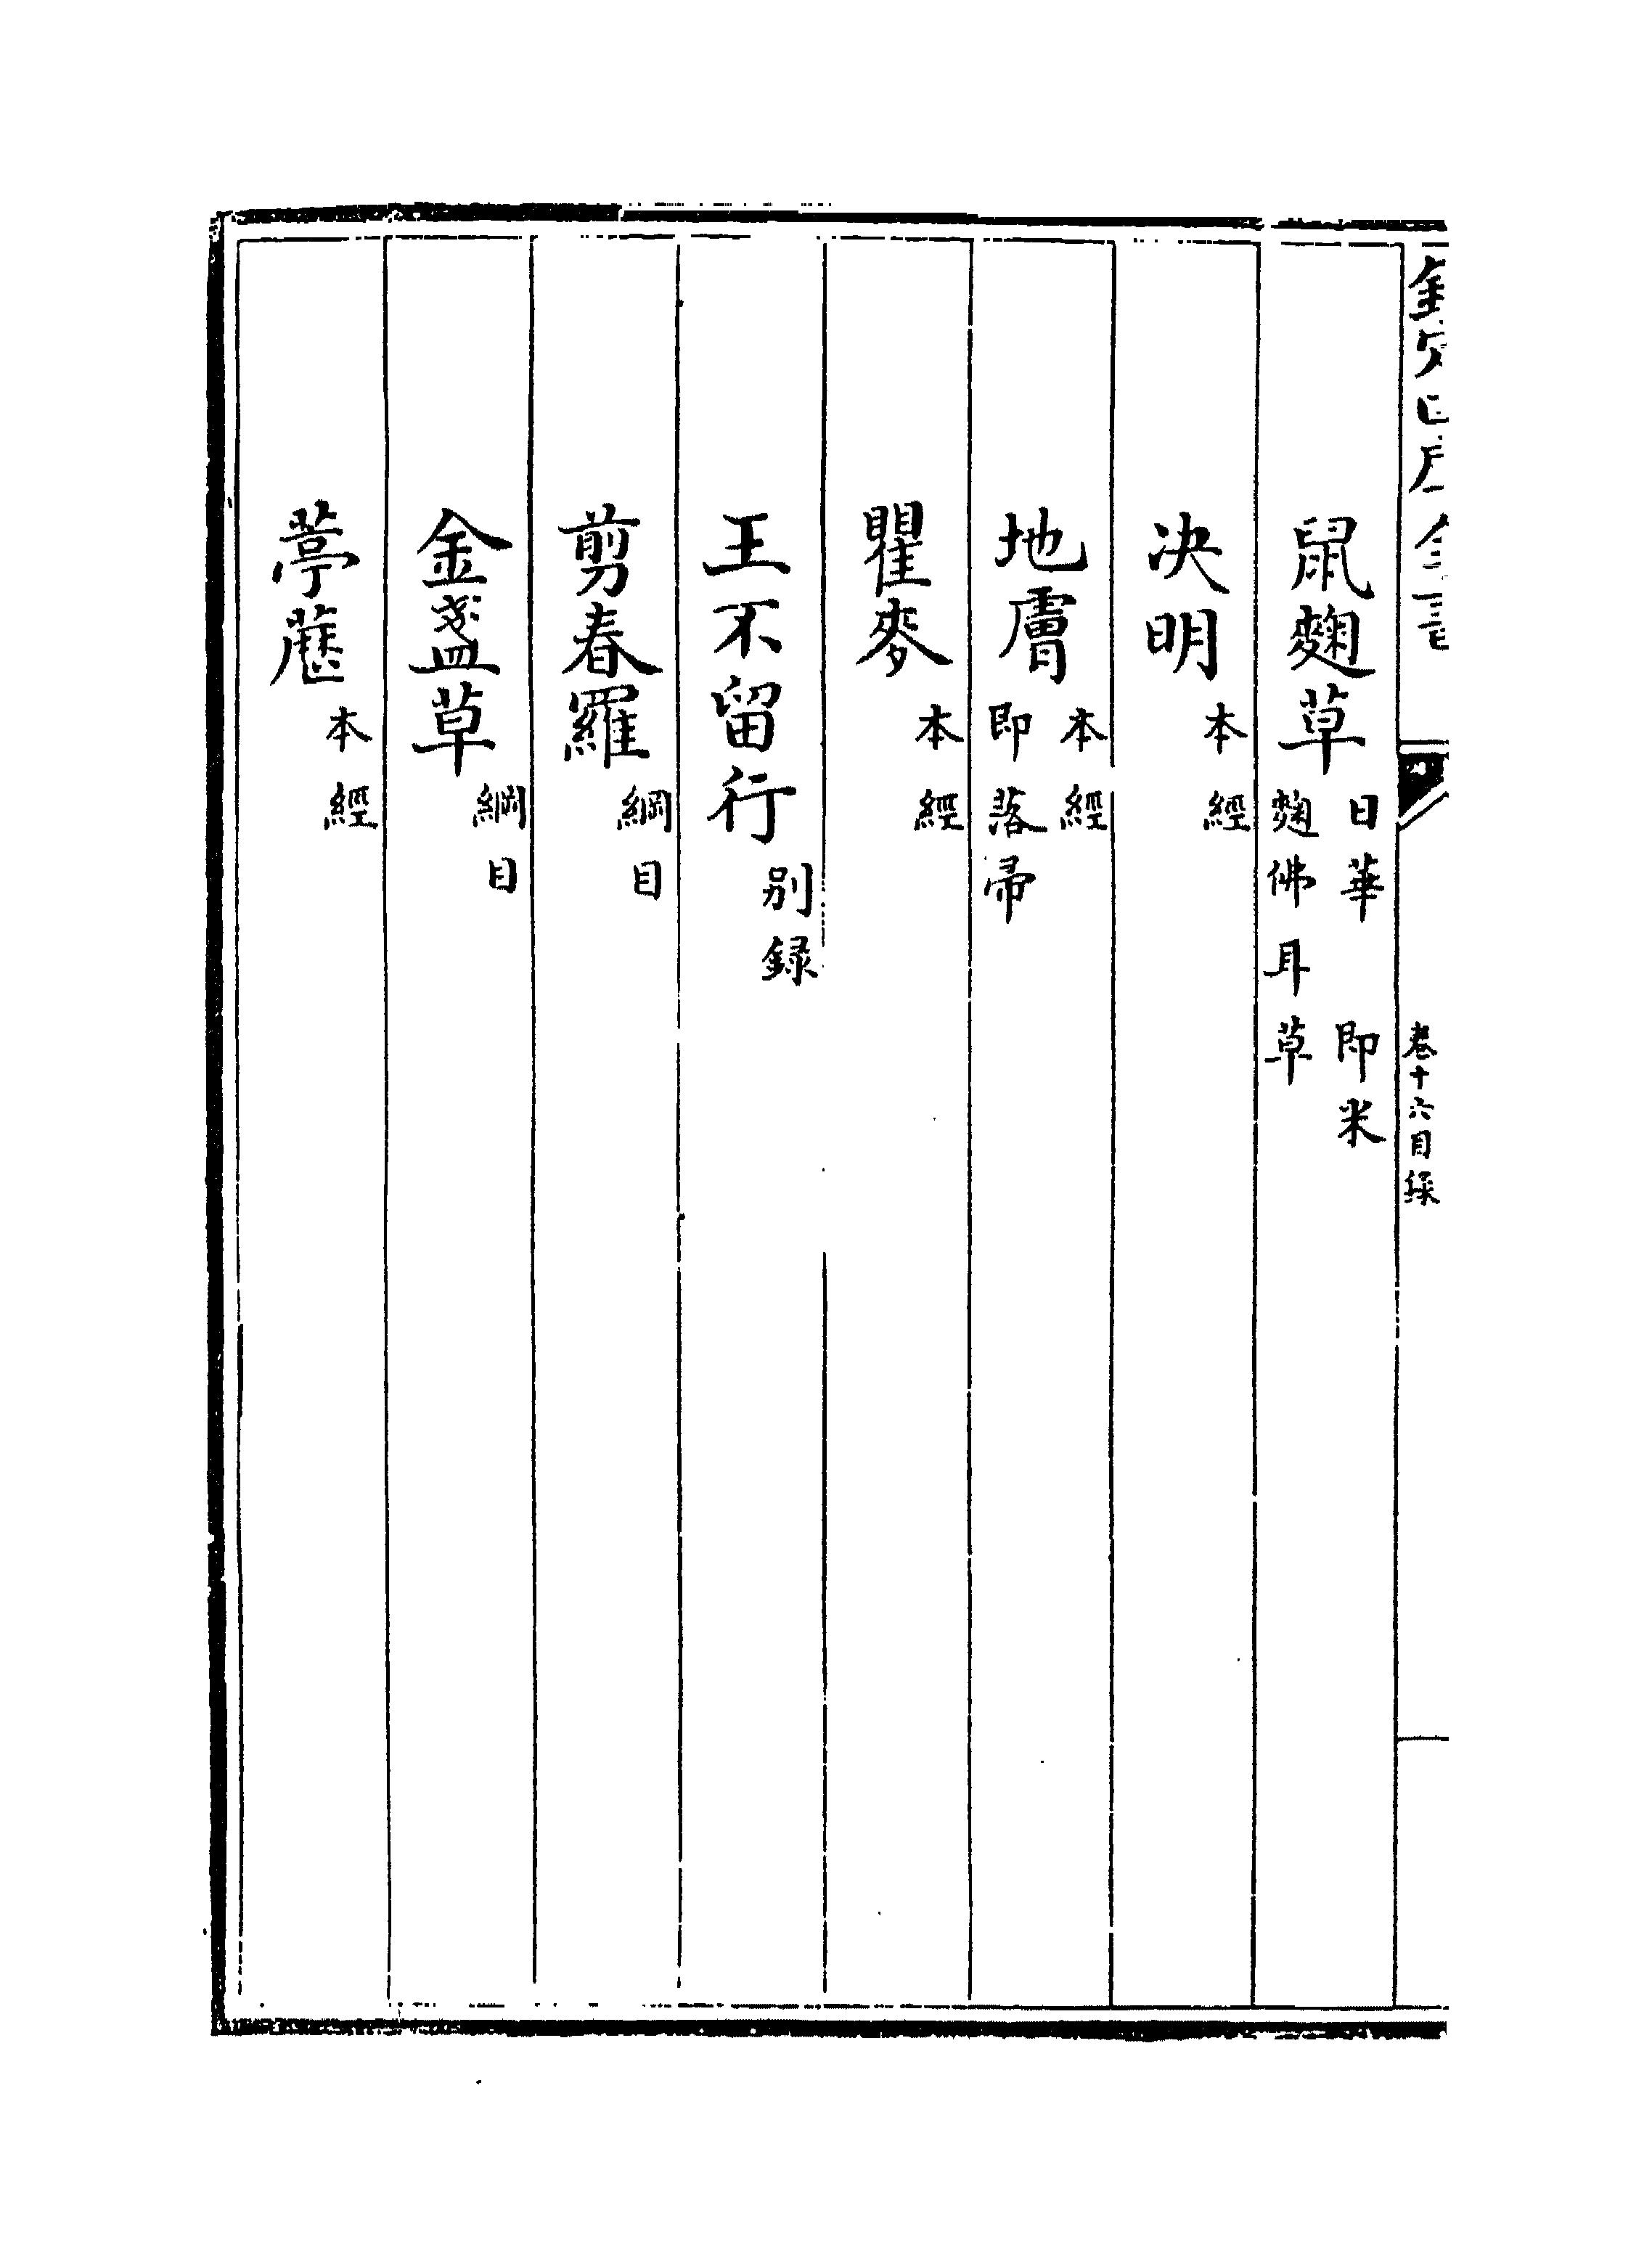 欽定四庫全書
卷十六目録
鼠麴草日華　即米
麴佛耳草
决明本經
地膚本經
即落帚
瞿麥本經
王不留行别録
剪春羅綱目
金盞草綱目
葶藶本經